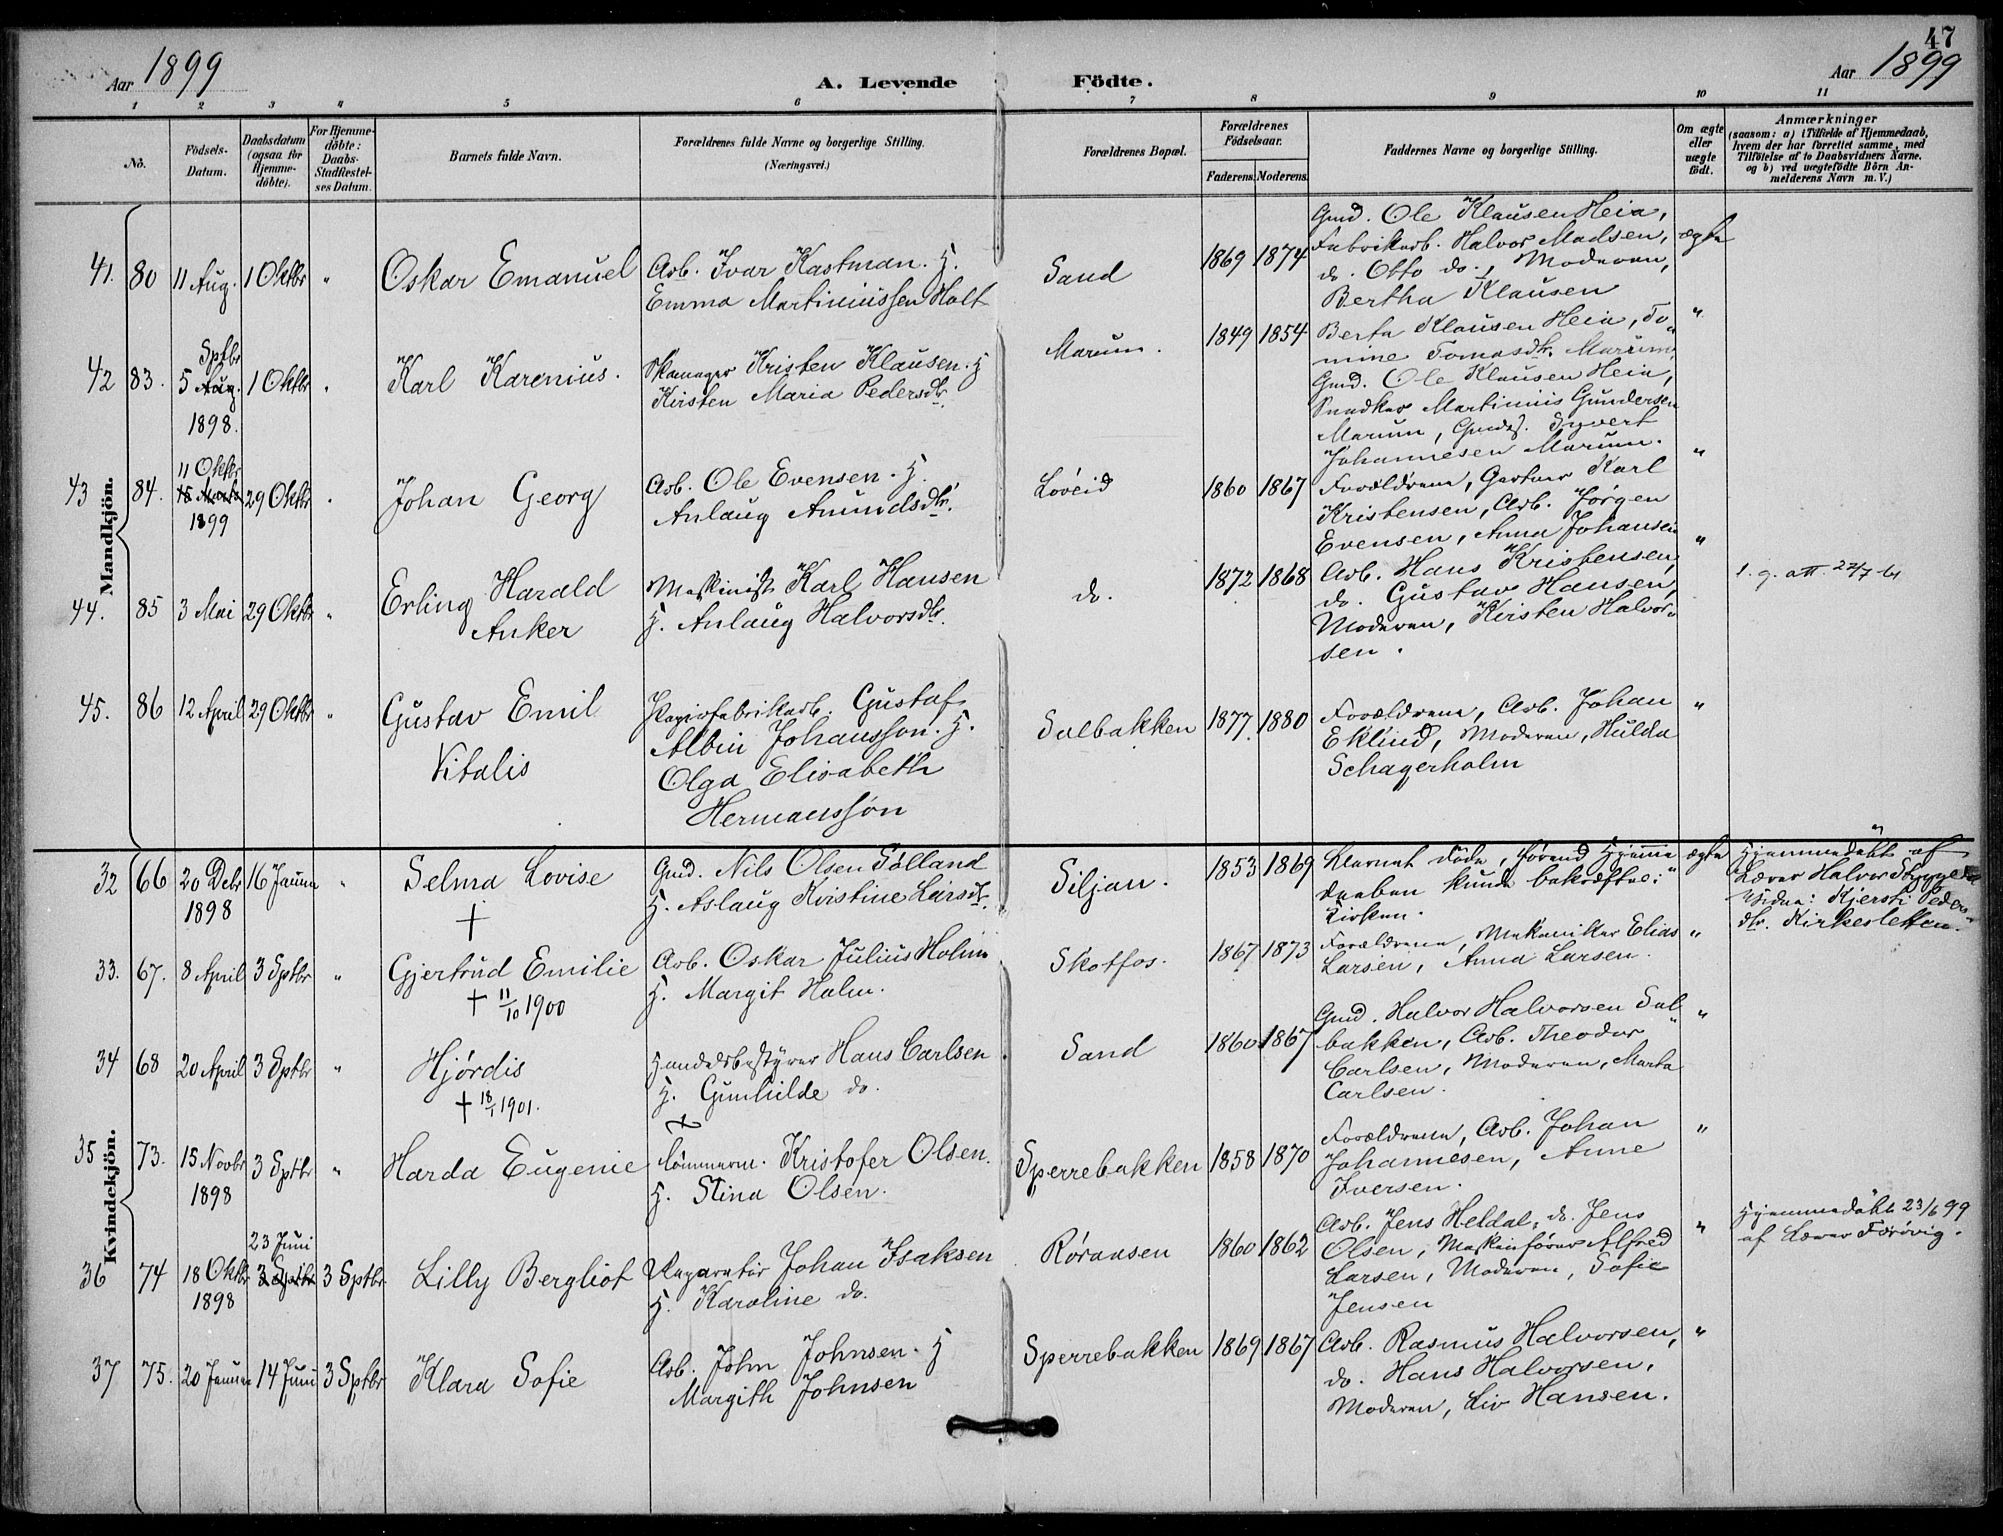 47
Aar 1899
A. Levende Födte.
Aar 1899
1 2 3 4 5 6 7 8 9 10 11
No.
Födsels-
Datum.
Daabsdatum
(ogsaa for
Hjemme-
döbte).
For Hjemme-
döbte:
Daabs-
Stadfæstel-
ses Datum.
Barnets fulde Navn.
Forældrenes fulde Navne og borgerlige Stilling.
(Næringsvei.)
Forældrenes Bopæl.
Forældrenes
Födselsaar.
Faderens. Moderens.
Faddernes Navne og borgerlige Stilling.
Om ægte
eller
uægte
födt.
Anmærkninger
(saasom: a) i Tilfælde af Hjemmedaab,
hvem der har forrettet samme, med
Tilföielse af to Daabsvidners Navne,
og b) ved uægtefödte Börn An-
melderens Navn m. V.)
Mandkjön.
41. 80 11 Aug. 1 Oktbr "
Oskar Emanuel
Arb. Ivar Kastman. H.
Emma Martiniussen Holt
Sand
1869 1874
Gmd. Ole Klausen Heia,
Fabrikarb. Halvor Madsen,
do. Otto do., Moderen,
Bertha Klausen
ægte
42 83. Sptbr
5 Aug. 1 Oktbr "
1898.
Karl Karenius.
Skomager Kristen Klausen. H
Kirsten Maria Pedersdtr.
Marum.
1849 1854
Berta Klausen Heia, To
mine Tomasdtr. Marum,
Gmd. Ole Klausen Heia,
Snedker Martinius Gundersen
Marum, Gmdss. Syvert
Johannesen Marum.
"
43 84. 11 Oktbr
29 Oktbr "
1899
Johan Georg
Arb. Ole Evensen. H.
Anlaug Amundsdtr.
Løveid
1860 1867
Forældrene, Gartner Karl
Kristensen, Arb. Jørgen
Evensen, Anna Johansen
"
44. 85 3 Mai 29 Oktbr "
Erling Harald
Anker
Maskinist Karl Hansen
H. Anlaug Halvorsdtr.
do.
1872 1868
Arb. Hans Kristensen,
do. Gustav Hansen,
Moderen, Kirsten Halvor
sen.
"
1. g. att. 22/7 61
45. 86 12 April 29 Oktbr "
Gustav Emil
Vitalis
Papirfabrikarb. Gustaf
Albin Johansson. H.
Olga Elisabeth
Hermansson
Salbakken
1877 1880
Forældrene, Arb. Johan
Eklind, Moderen, Hulda
Schagerholm
"
Kvindekjön.
32 66 20 Dcbr 16 Januar "
1898
Selma Lovise
†
Gmd. Nils Olsen Tølland
H. Aslaug Kristine Larsdtr.
Siljan.
1853 1869
Barnet døde, førend Hjemme
daaben kunde bekræftes i
Kirken.
ægte
Hjemmedøbt af
Lærer Halvor
Vidne: Kjersti Peders
dtr. Kirkesletten.
33. 67. 8 April 3 Sptbr "
Gjertrud Emilie
† 11/10 1900
Arb. Oskar Julius Holm
H. Margit Holm.
Skotfos.
1867 1873
Forældrene, Mekaniker Elias
Larsen, Anna Larsen.
"
34 68 20 April 3 Sptbr "
Hjørdis
† 18/1 1901.
Handelsbestyrer Hans Carlsen
H. Gunhilde do.
Sand
1860 1867
Gmd. Halvor Halvorsen Sal
bakken, Arb. Theodor
Carlsen, Moderen, Marta
Carlsen.
"
35 73. 15 Novbr 3 Sptbr "
1898
Harda Eugenie
Tømmerm. Kristofer Olsen.
H. Stina Olsen.
Sperrebakken
1858 1870
Forældrene, Arb. Johan
Johannesen, Anne
Iversen.
"
36 74 18 Oktbr
1898
23 Juni
3 Sptbr 3 Sptbr
Lilly Bergliot
Reparatør Johan Isaksen
H. Karoline do.
Røraasen
1860 1862
Arb. Jens Heldal, do. Jens
Olsen, Maskinfører Alfred
Larsen, Moderen, Sofie
Jensen
"
Hjemmedøbt 23/6 99
af Lærer Førøvig.
37 75. 20 Januar 14 Juni 3 Sptbr
Klara Sofie
Arb. John Johnsen. H
Margith Johnsen
Sperrebakken
1869 1867
Arb. Rasmus Halvorsen,
do. Hans Halvorsen,
Moderen, Liv Hansen.
"